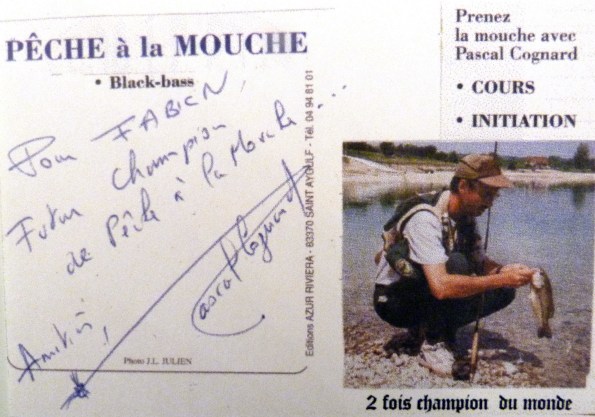 PÊCHE à la MOUCHE
• Black-bass
Pour FABIEN,
Futur champion
de Pêche à la Mouche...
Amitié,
Pascal Cognard
Photo J.L. JULIEN
Editions AZUR RIVIERA - 83370 SAINT AYGULF - Tél. 04 94 81 01
Prenez
la mouche avec
Pascal Cognard
• COURS
• INITIATION
2 fois champion du monde